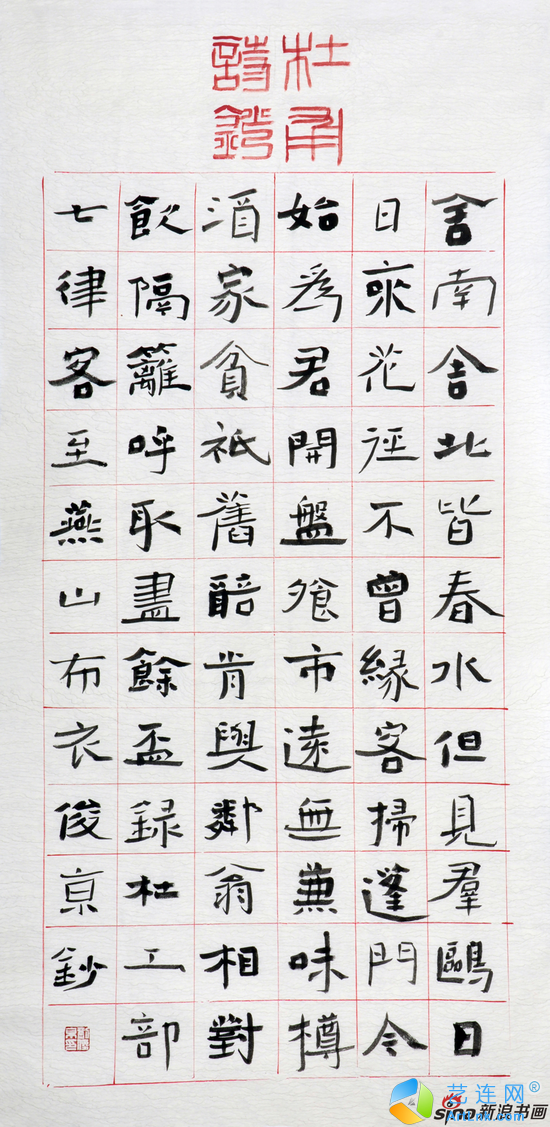 杜甫
詩鈔
舍南舍北皆春水但見羣鷗日
日來花徑不曾緣客掃蓬門今
始爲君開盤飧市遠無兼味樽
酒家貧祇舊醅肯與鄰翁相對
飲隔籬呼取盡餘盃録杜工部
七律客至燕山布衣俊亰鈔
艺连网
ArtLnk.com
sina新浪书画